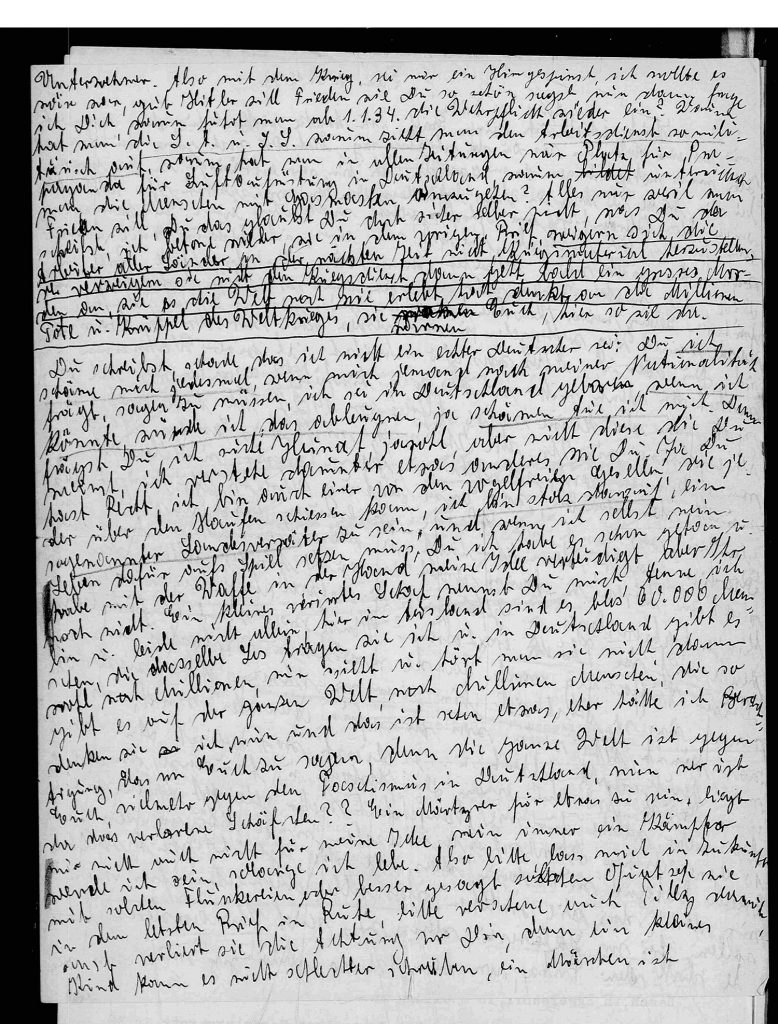 Unternehmer. Also mit dem Krieg, sei mir ein Hirngespinst, ich wollte es
wär wer, gub Hitler will Frieden wie Du so schön sagst nun dann frage
ich Dich warum führt man ab 1.1.34. die Wehrpflicht wieder ein? Warum
hat man die S.A. u. S.S. warum zieht man den Arbeitsdienst so mili-
tärisch auf, warum hat man in allen Zeitungen nur Platz für Pro-
paganda für Luftaufrüstung in Deutschland, warum unterrichtet
man die Menschen mit Gasmasken umzugehen? Alles nur weil man
Frieden will Du das glaubst Du doch sicher selber nicht, was Du da
schreibst, ich betone wieder, wie in dem vorigen Brief, weigern sich die
Arbeiter aller Länder in der nächsten Zeit nicht, Kriegsmaterial herzustellen,
verweigern sie nicht den Kriegsdienst dann geht bald ein grosses Mor-
den an, wie es die Welt noch nie erlebt hat denkt an die Millionen
Tote u. Krüppel des Weltkrieges, sie warnen Euch, hier so viel da.
Du schreibst, schade das ich nicht ein echter Deutscher sei: Du ich
schäme mich jedesmal, wenn mich jemand nach meiner Nationalität
frägt, sagen zu müssen, ich sei in Deutschland geboren wenn ich
könnte würde ich das ableugnen, ja schämen tue ich mich. Dann
frägst Du, ob ich nicht Heimat jawohl, aber nicht diese die Du
meinst, ich verstehe darunter etwas anderes wie Du. Ja Du
hast Recht, ich bin auch einer von den vogelfreien Gesellen die je-
der über den Haufen schiessen kann, ich bin stolz darauf, ein
sogenannter Landesverräter zu sein, und wenn ich selbst mein
Leben dafür aufs Spiel setzen muss, Du ich habe es schon getan u.
habe mit der Waffe in der Hand meine Idee verteidigt aber Ihr
noch nicht. Ein kleines verirrtes Schaf nennst Du mich, denn ich
bin u. leide nicht allein, hier im Ausland sind es blos 60.000 Men-
schen, die dasselbe Los tragen wie ich u. in Deutschland gibt es
wohl noch Millionen, nun zieht u. hört man sie nicht dann
gibt es auf der ganzen Welt, noch Millionen Menschen, die so
denken wie ich, nun und das ist schon etwas, eher hätte ich Berech-
tigung, das von Euch zu sagen, denn die ganze Welt ist gegen
Euch, vielmehr gegen den Faschismus in Deutschland, nun wer ist
da das verlorene Schäfchen?? Ein Märtyrer für etwas zu sein, liegt
mir nicht auch nicht für meine Idee nein immer ein Kämpfer
werde ich sein, solange ich lebe. Also bitte lass mich in Zukunft
mit solchen Flunkereien oder besser gesagt solchen wie
in dem letzten Brief in Ruhe, bitte verschone mich damit,
sonst verliert sie die Achtung vor Dir, denn ein kleines
Kind kann es nicht schlechter schreiben, ein Märchen ist